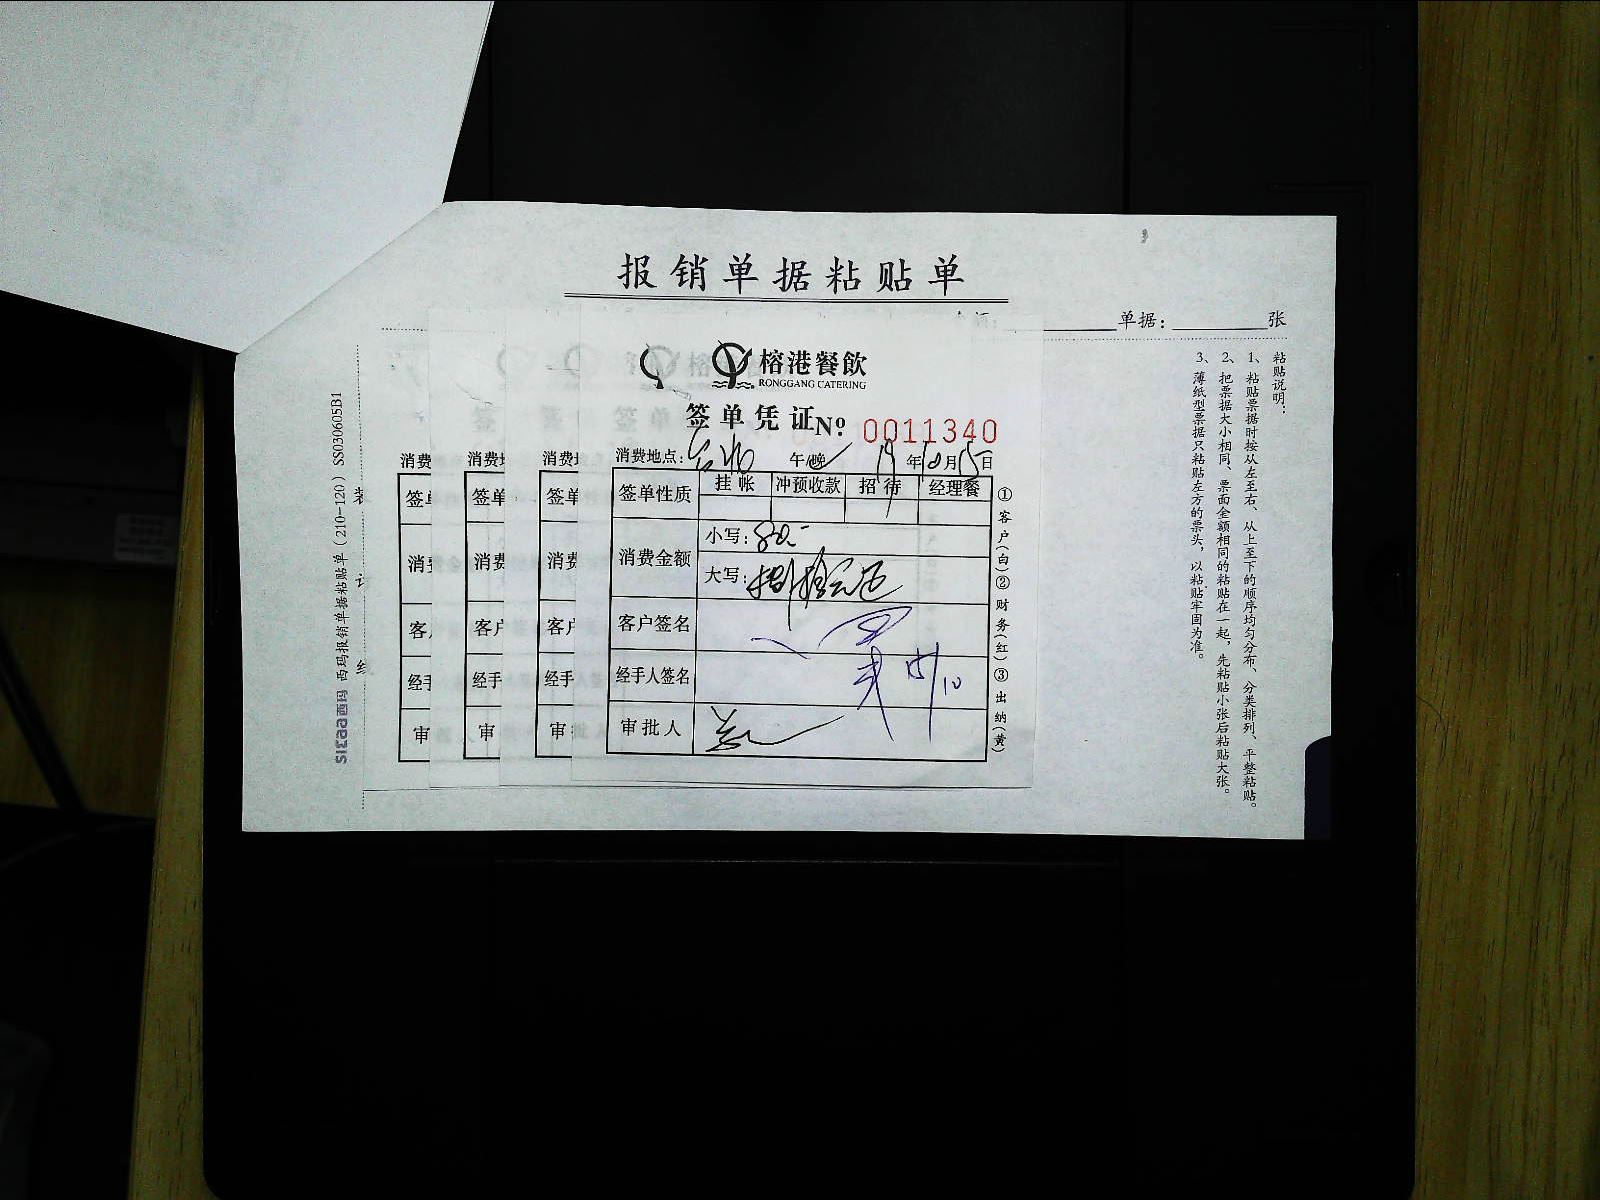 报销单据粘贴单
单据:________张
榕港餐飲
RONGGANG CATERING
签单凭证 No. 0011340
消费地点: 台北 午/晚 19年10月15日
签单性质 挂帐 冲预收款 招待 经理餐
消费金额 小写: 80.-
大写: 捌拾元正
客户签名
经手人签名 15/10
审批人
①客户(白)②财务(红)③出纳(黄)
消费 消费地 消费地
签单 签单 签单
消费 消费 消费
客户 客户 客户
经手 经手 经手
审 审 审
粘贴说明:
1、粘贴票据时按从左至右、从上至下的顺序均匀分布、分类排列、平整粘贴。
2、把票据大小相同、票面金额相同的粘贴在一起,先粘贴小张后粘贴大张。
3、薄纸型票据只粘贴左方的票头,以粘贴牢固为准。
装订线
西玛 西玛报销单据粘贴单(210-120) SS030605B1